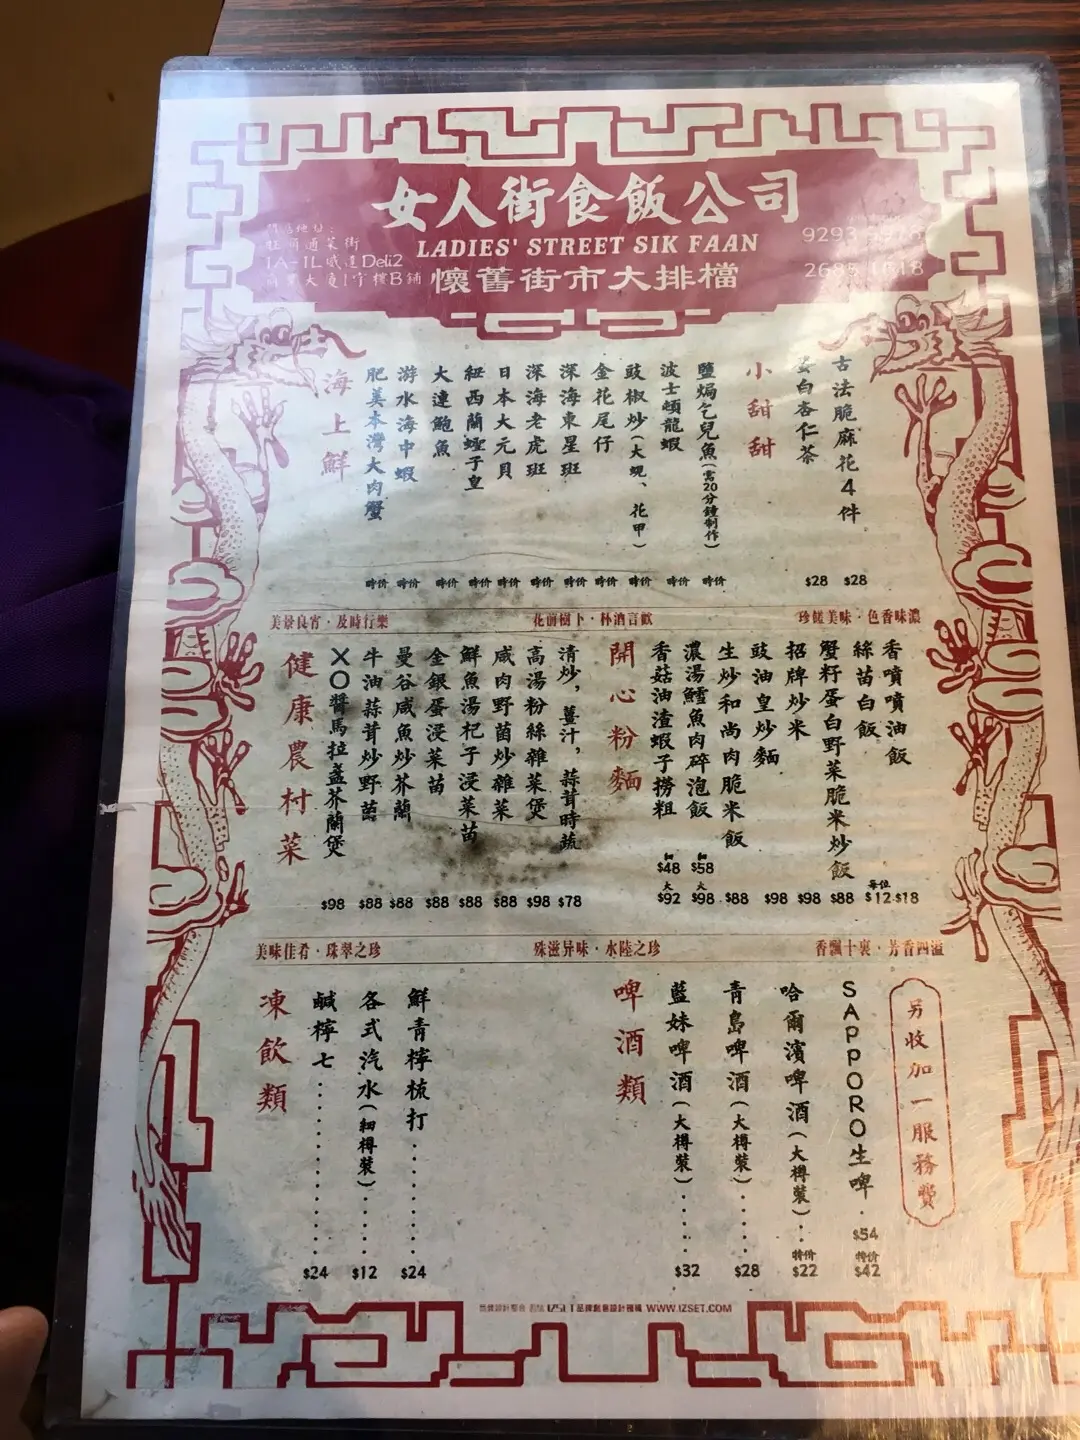 女人街食飯公司
LADIES' STREET SIK FAAN
懷舊街市大排檔
旺角通菜街
1A-1L威達Deli2
商業大廈1字樓B鋪
海上鮮
肥美本灣大肉蟹 時价
游水海中蝦 時价
大連鮑魚 時价
紐西蘭蟶子皇 時价
日本大元貝 時价
深海老虎班 時价
深海東星班 時价
金花尾仔 時价
豉椒炒(大蜆、花甲) 時价
波士頓龍蝦 時价
鹽焗乞兒魚(需20分鐘制作) 時价
小甜甜
蛋白杏仁茶 $28
古法脆麻花4件 $28
美景良宵·及時行樂
花前樹下·杯酒言歡
珍饈美味·色香味濃
健康農村菜
XO醬馬拉盞芥蘭煲 $98
牛油蒜茸炒野菌 $88
曼谷咸魚炒芥蘭 $88
金銀蛋浸菜苗 $88
鮮魚湯杞子浸菜苗 $88
咸肉野菌炒雜菜 $88
高湯粉絲雜菜煲 $98
清炒,薑汁,蒜茸時蔬 $78
開心粉麵
香菇油渣蝦子撈粗 細 $48 大 $92
濃湯鱈魚肉碎泡飯 細 $58 大 $98
生炒和尚肉脆米飯 $88
豉油皇炒麵 $98
招牌炒米 $98
蟹籽蛋白野菜脆米炒飯 $88
絲苗白飯 每位 $12
香噴噴油飯 $18
美味佳肴·珠翠之珍
殊滋异味·水陸之珍
香飄十裏·芳香四溢
凍飲類
鹹檸七 $24
各式汽水(細樽裝) $12
鮮青檸梳打 $24
啤酒類
藍妹啤酒(大樽裝) $32
青島啤酒(大樽裝) $28
哈爾濱啤酒(大樽裝) 特价 $22
SAPPORO生啤 $54 特价 $42
另收加一服務費
WWW.IZSET.COM